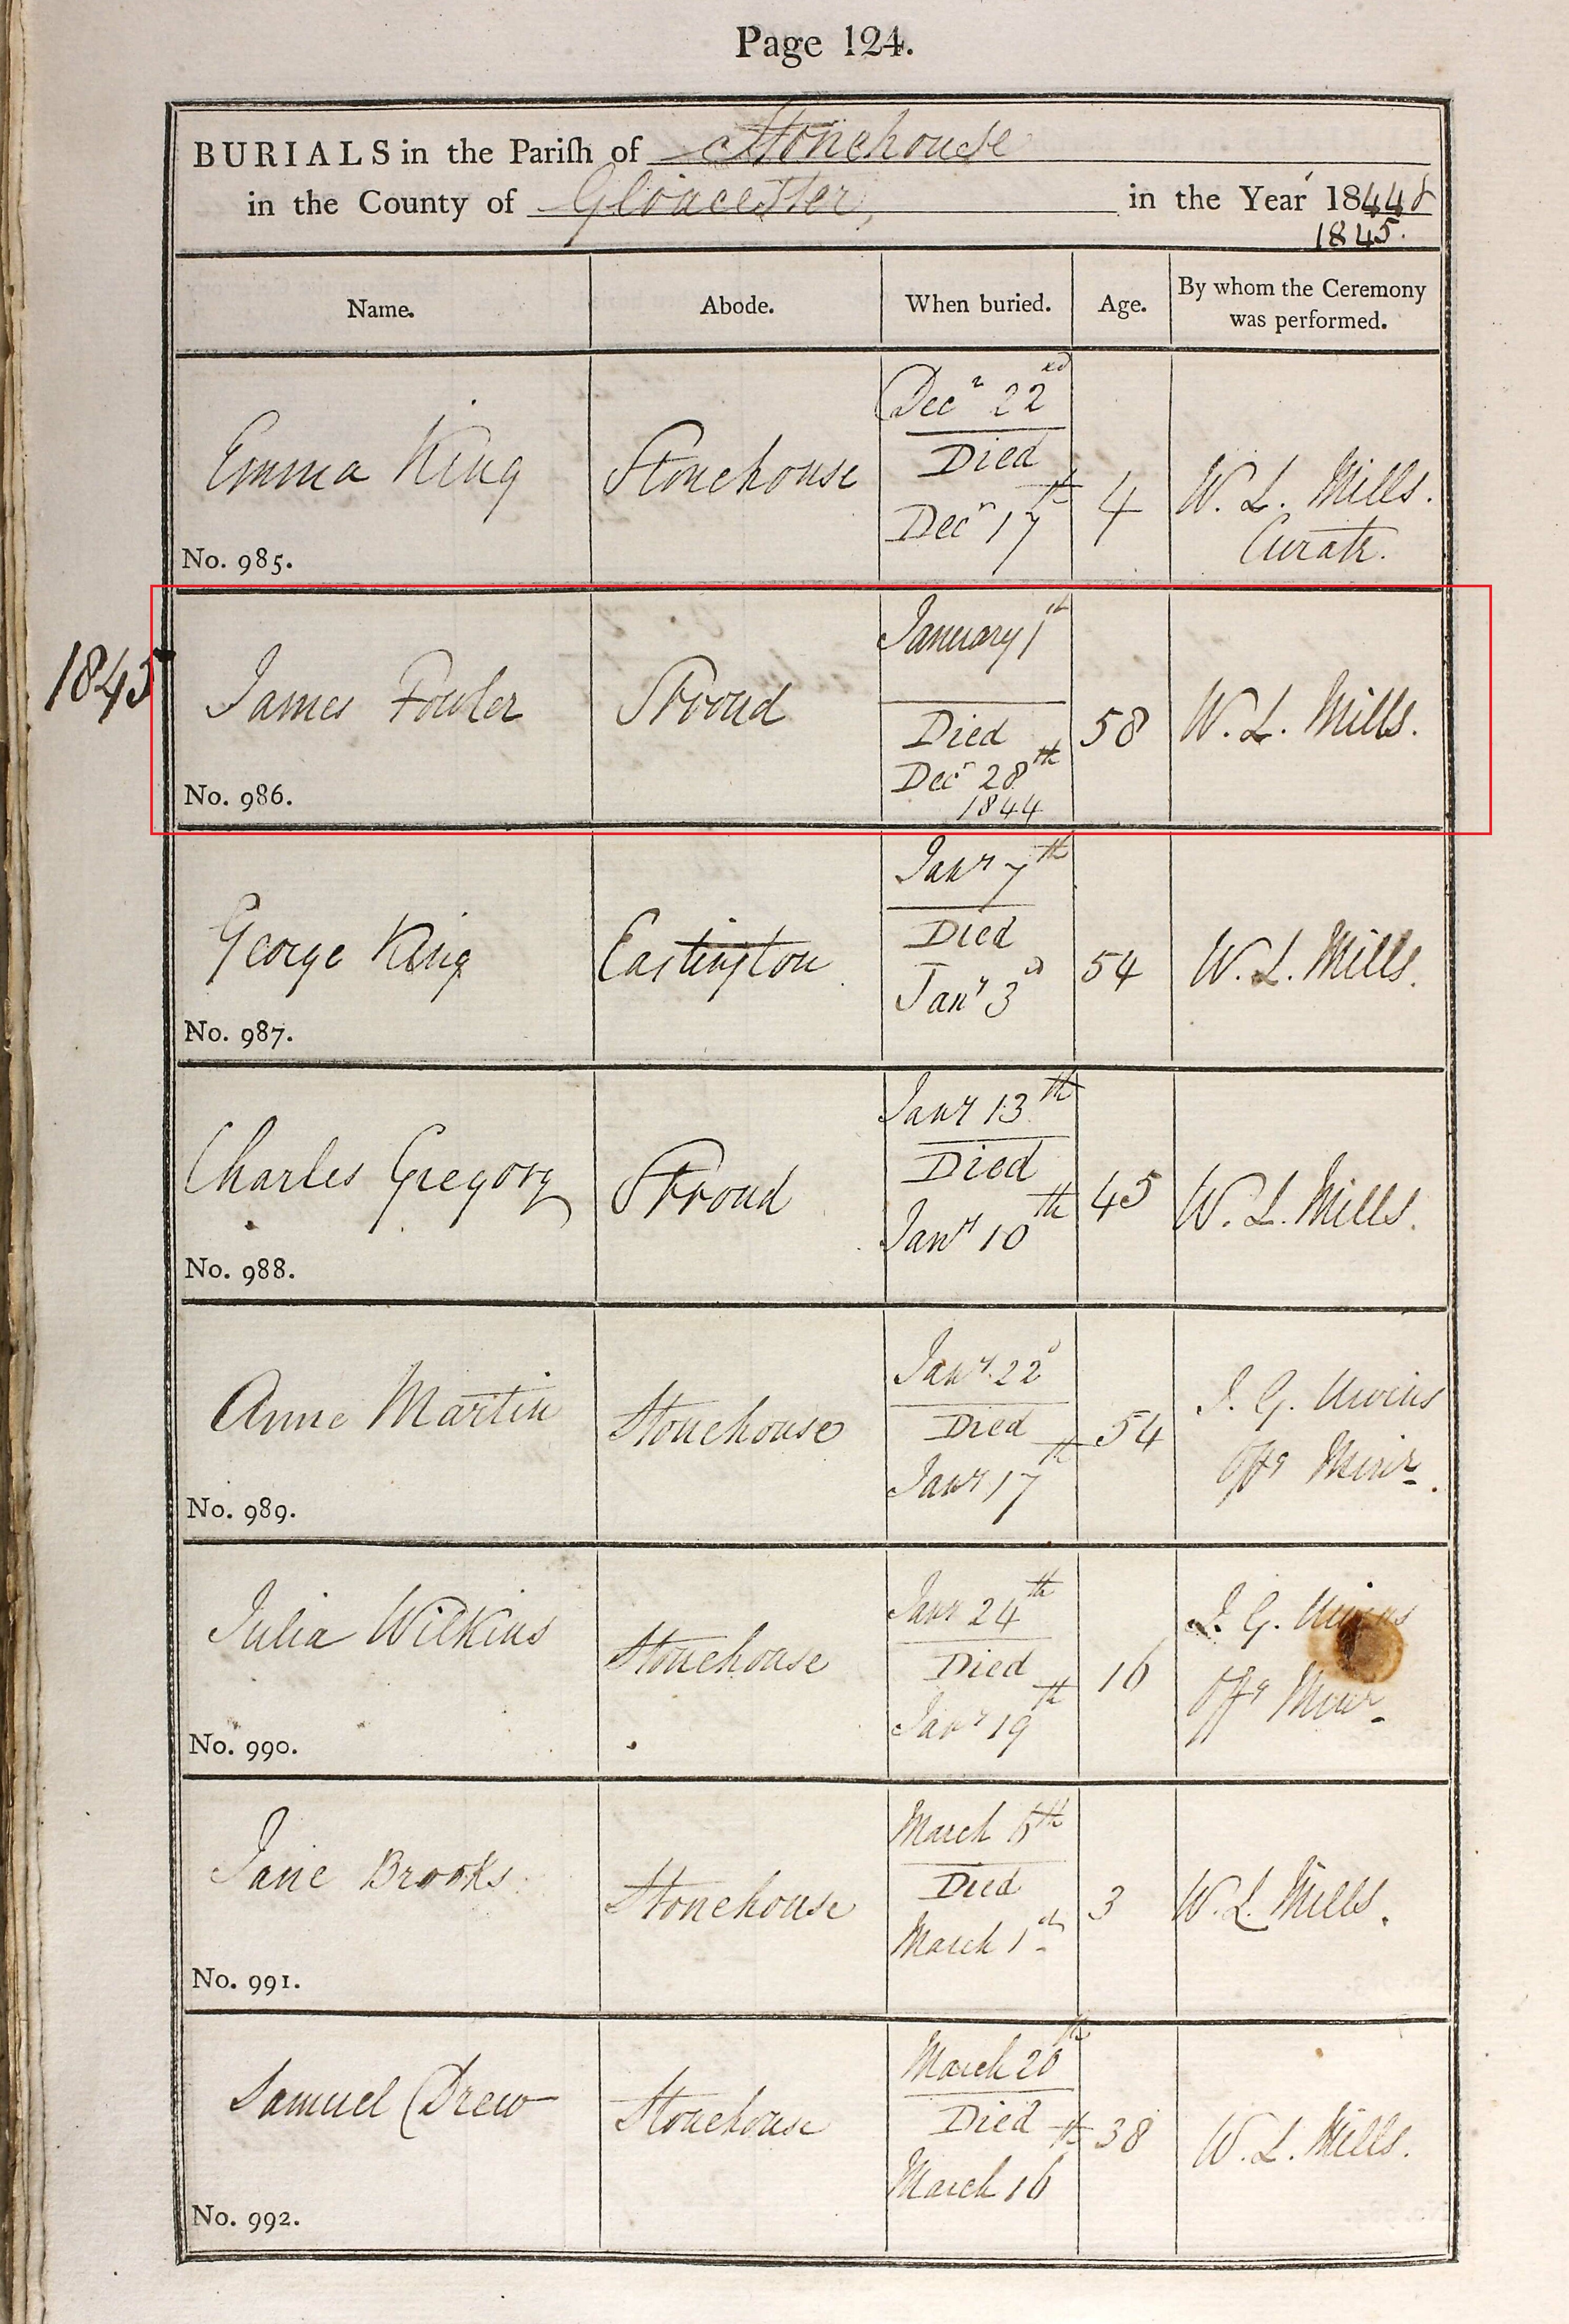 Page 124.
BURIALS in the Pariſh of Stonehouse
in the County of Gloucester, in the Year 1844 &
1845.
Name. Abode. When buried. Age. By whom the Ceremony was performed.
Decr 22nd
Died
Emma King Stonehouse Decr 17th 4 W. L. Mills.
Curate.
No. 985.
January 1st
1845 James Fowler Stroud Died 58 W. L. Mills.
Decr 28th
No. 986. 1844
Jany 7th
Died
George King Eastington Jany 3d 54 W. L. Mills.
No. 987.
Jany 13th
Died
Charles Gregory Stroud Jany 10th 45 W. L. Mills.
No. 988.
Jany 22d
Died
Anne Martin Stonehouse Jany 17th 54 J. G. Uwins
Offg Minr.
No. 989.
Jany 24th
Died
Julia Wilkins Stonehouse Jany 19th 16 J. G. Uwins
Offg Minr
No. 990.
March 6th
Died
Jane Brooks Stonehouse March 1st 3 W. L. Mills.
No. 991.
March 20th
Died
Samuel Drew Stonehouse March 16th 38 W. L. Mills.
No. 992.